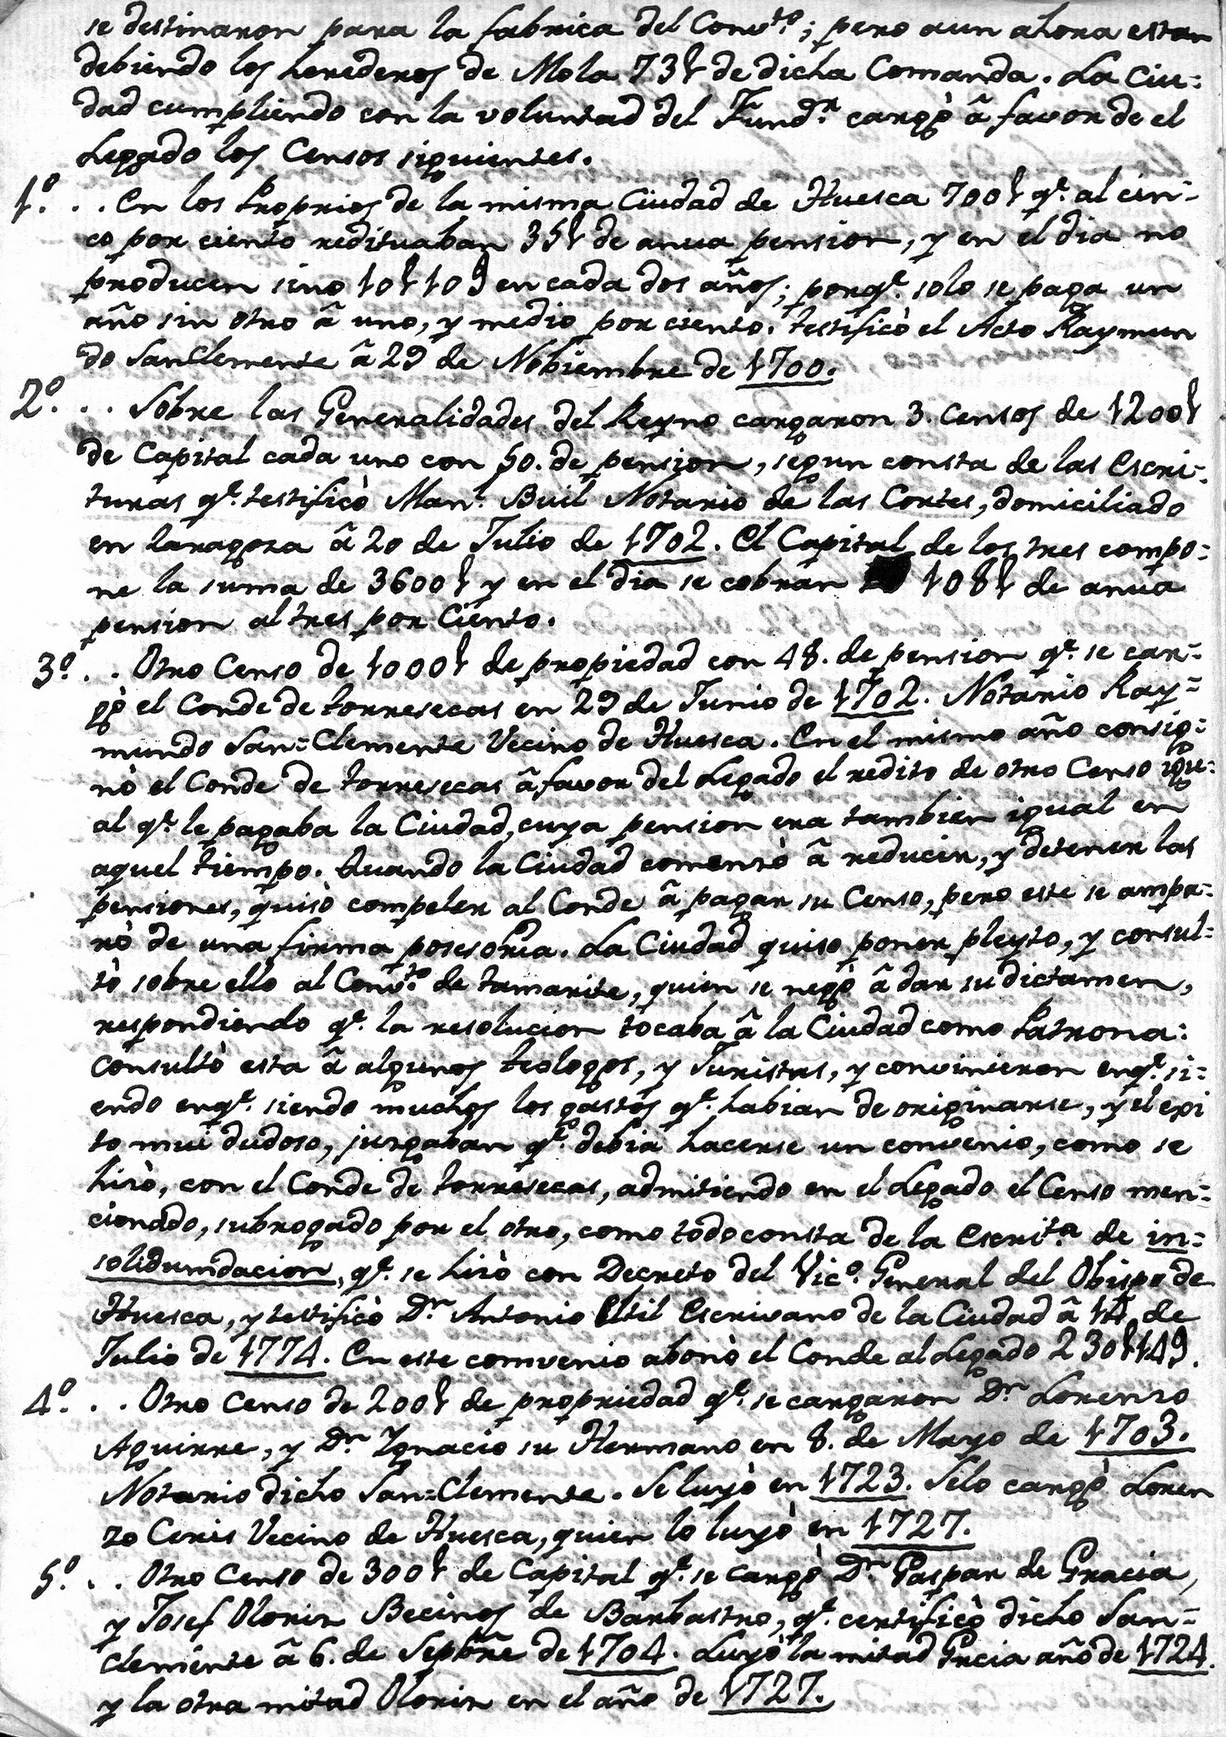 se destinaron para la fabrica del Conv.to; pero aun ahora estan
debiendo los herederos de Mola 73ł de dicha Comanda. La Ciu=
dad cumpliendo con la voluntad del Fund.r cargò â favor de el
Legado los Censos siguientes.
1.º .. En los Proprios de la misma Ciudad de Huesca 700ł q.e al cin=
co por ciento redituaban 35ł de anua pension, y en el dia no
producen sino 10ł 10s en cada dos años; porq.e solo se paga un
año sin otro â uno, y medio por ciento. Testificò el Acto Raymun
do SanClemente â 29 de Nobiembre de 1700.
2.º .. Sobre las Generalidades del Reyno cargaron 3. Censos de 1200ł
de Capital cada uno con 50. de pension, segun consta de las Escri=
turas q.e testificò Man.l Buil Notario de las Cortes, domiciliado
en Zaragoza â 20 de Julio de 1702. El Capital de los tres compo=
ne la suma de 3600ł y en el dia se cobran 108ł de anua
pension al tres por Ciento.
3.º .. Otro Censo de 1000ł de propiedad con 48. de pension q.e se car=
gò el Conde de Torresecas en 29 de Junio de 1702. Notario Ray=
mundo San=Clemente Vecino de Huesca. En el mismo año consig=
nò el Conde de Torresecas â favor del Legado el redito de otro Censo igu=
al q.e le pagaba la Ciudad, cuya pension era tambien igual en
aquel tiempo. Quando la Ciudad comenzò â reducir, y detener las
pensiones, quisò compeler al Conde â pagar su Censo, pero este se ampa=
rò de una firma posesoria. La Ciudad quiso poner pleyto, y consul=
tò sobre ello al Conv.to de Tamarite, quien se negò â dar su dictamen,
respondiendo q.e la resolucion tocaba â la Ciudad como Patrona:
consultò esta â algunos Teologos, y Juristas, y convinieron enq.e si=
endo enq.e siendo muchos los gastos q.e habian de originarse, y el exi
to mui dudoso, juzgaban q.e debia hacerse un convenio, como se
hizò, con el Conde de Torresecas, admitiendo en el Legado el Censo men=
cionado, subrogado por el otro, como todo consta de la Escrit.ra de in=
solidumdacion, q.e se hizò con Decreto del Vic.o General del Obispo de
Huesca, y testificò D.n Antonio Escrivano de la Ciudad â de
Julio de 1774. En este comvenio abonò el Conde al Legado 230ł 14s.
4.º .. Otro Censo de 200ł de propriedad q.e se cargaron D.n Lorenzo
Aguirre, y D.n Ygnacio su Hermano en 8. de Mayo de 1703.
Notario dicho San=Clemente. Se luyò en 1723. Selo cargò Loren
zo Ceris Vecino de Huesca, quien lo luyò en 1727.
5.º .. Otro Censo de 300ł de Capital q.e se cargò D.n Gaspar de Gracia,
y Josef Olorin Becinos de Barbastro, q.e certificò dicho San=
clemente â 6. de Sepbre de 1704. Luyò la mitad Grcia año de 1724.
y la otra mitad Olorin en el año de 1727.